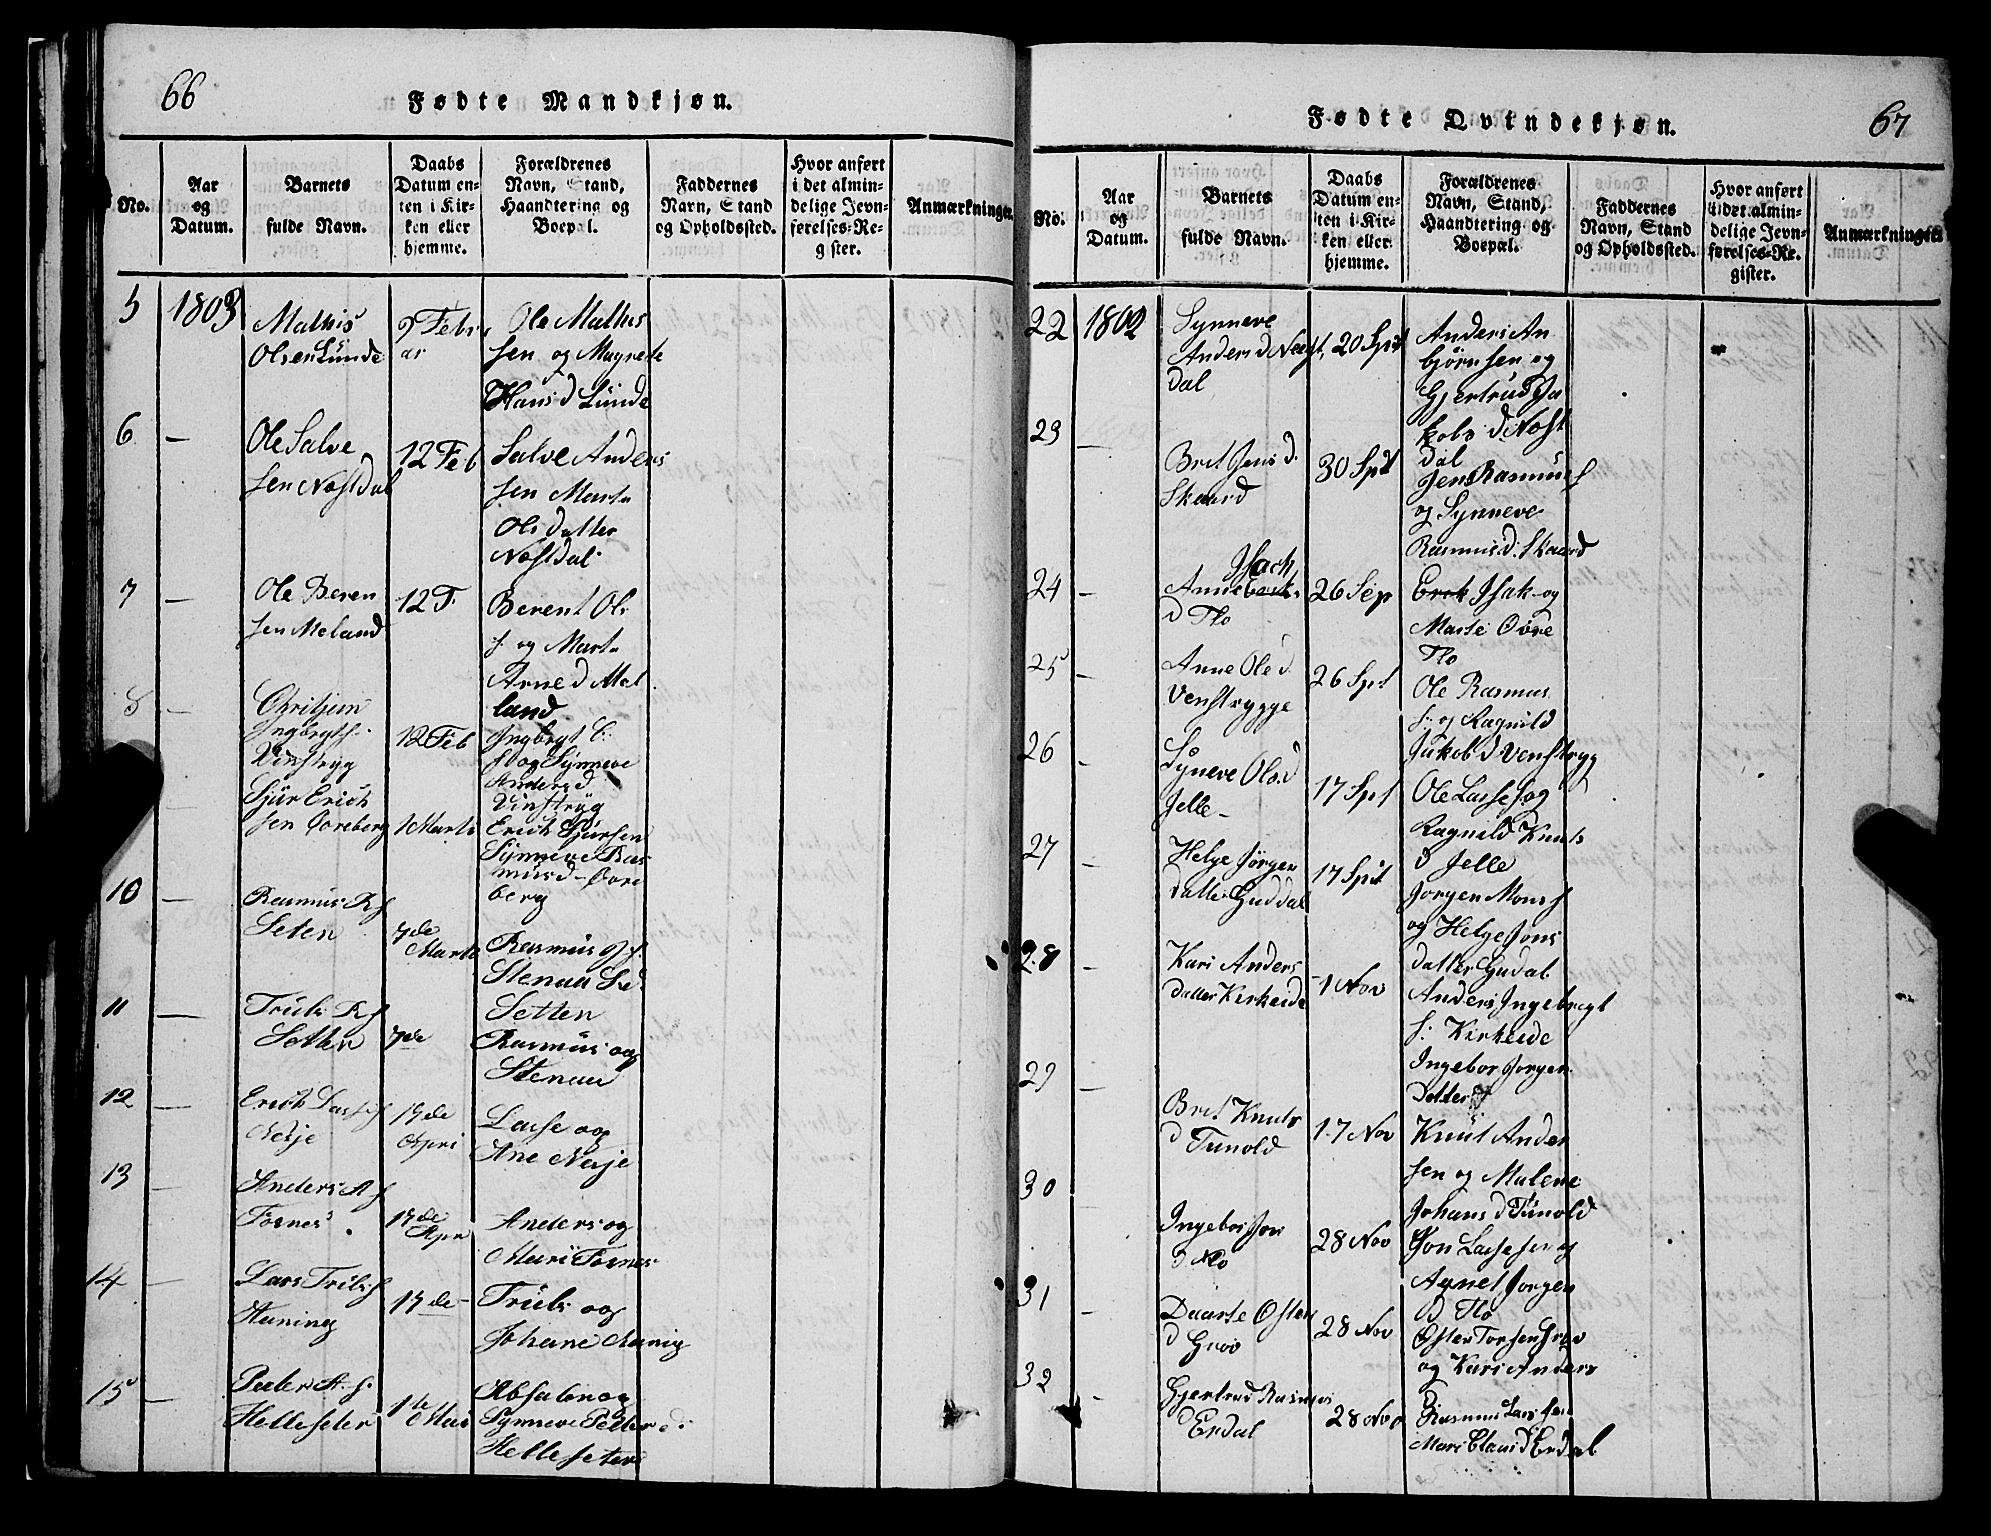 66
Fødte Mandkjøn.
No.
Aar
og
Datum.
Barnets
fulde Navn.
Daabs
Datum en-
ten i Kir-
ken eller
hjemme.
Forældrenes
Navn, Stand,
Haandtering og
Boepæl.
Faddernes
Navn, Stand
og Opholdssted.
Hvor anført
i det almin-
delige Jevn-
førelses-Re-
gister.
Anmærkninger.
5
1803
Mathis
Olsen Lunde
9 Febr
ar
Ole Mathis
sen og Magrete
Hans d Lunde
6
—
Ole Salve
sen Nøstdal
12 Feb
Salve Anders
sen Marta
Ols datter
Nøstdal
7
—
Ole Beren
sen Meland
12 F.
Berent Ols
s. og Marta
Arne d Mel
land
8
—
Ingbrgts.
Vinstryg
12 Feb
Ingbrgt
og Synneve
Anders d
Vinstryg
Sjur Erich
sen
1 Marts
Erich Sjursen
Synneve Ras
musd-
berg
10
—
Rasmus R s
Seten
7de
Marts
Rasmus
Stenau
Setten
11
—
Truls R s
Setten
7de
Rasmus og
Stenau
12
—
Erich Lasses
Nesje
19de
Apri
Lasse og
Ane Nesje
13
—
Anders A s
Tosnes
19de
Apri
Anders og
Mari Tosnes
14
—
Lars Truls s
Hanning
19de
Truls og
Johane
15
—
Peder A. s.
Helleseter
1de Mai
Absalon og
Synneve Peder d:
Helleseter
67
Fødte Qvindekjøn.
No.
Aar
og
Datum.
Barnets
fulde Navn.
Daabs
Datum en-
ten i Kir-
ken eller
hjemme.
Forældrenes
Navn, Stand,
Haandtering og
Boepæl.
Faddernes
Navn, Stand
og Opholdssted.
Hvor anført
i det almin-
delige Jevn-
førelses-Re-
gister.
Anmærkninger.
22
1802
Synneve
Anders d Nøst
dal
20 Spt
Anders An
bjørnsen og
Gjertrud Ja
kobs d. Nøst
dal
23
—
Bret Jens d.
Skaard
30 Spt
Jens Rasmus s
og Synneve
Rasmus d. Skaard
24
—
Isach
Anne
d Flo
26 Sep
Erik Isak og
Marte Øvre
Flo
25
—
Anne Ole d.
Venstrygge
26 Spt
Ole Rasmus
s. og Ragnild
Jakob d Venstryg
26
—
Syneve Ols. d
Jelle
17 Spt
Ole Lasse s og
Ragnild Knuts
d Jelle
27
—
Helge Jørgen
datter Guddal
17 Spt
Jorgen Mons s
og Helge Jons
datter Gudal
28
—
Kari Anders
datter Kirkeide
1 Nov
Anders Ingebregt
s: Kirkeide
Ingebor Jorgen
Datter
29
—
Bret Knuts
d Tunold
17 Nov
Knut Ander
sen og Malene
Johans d Tunold
30
Ingebor Jon
d Flo
28 Nov
Jon Lassesen og
Agnet Jorgen
d Flo
31
—
Daarte Osten
d Grov
28 Nov
Osten Torsen Grov
og Kari Anders
32
—
Gjertrud Rasmus
d Erdal
28 Nov
Rasmus Lars sen
Mari Claus d Erdal